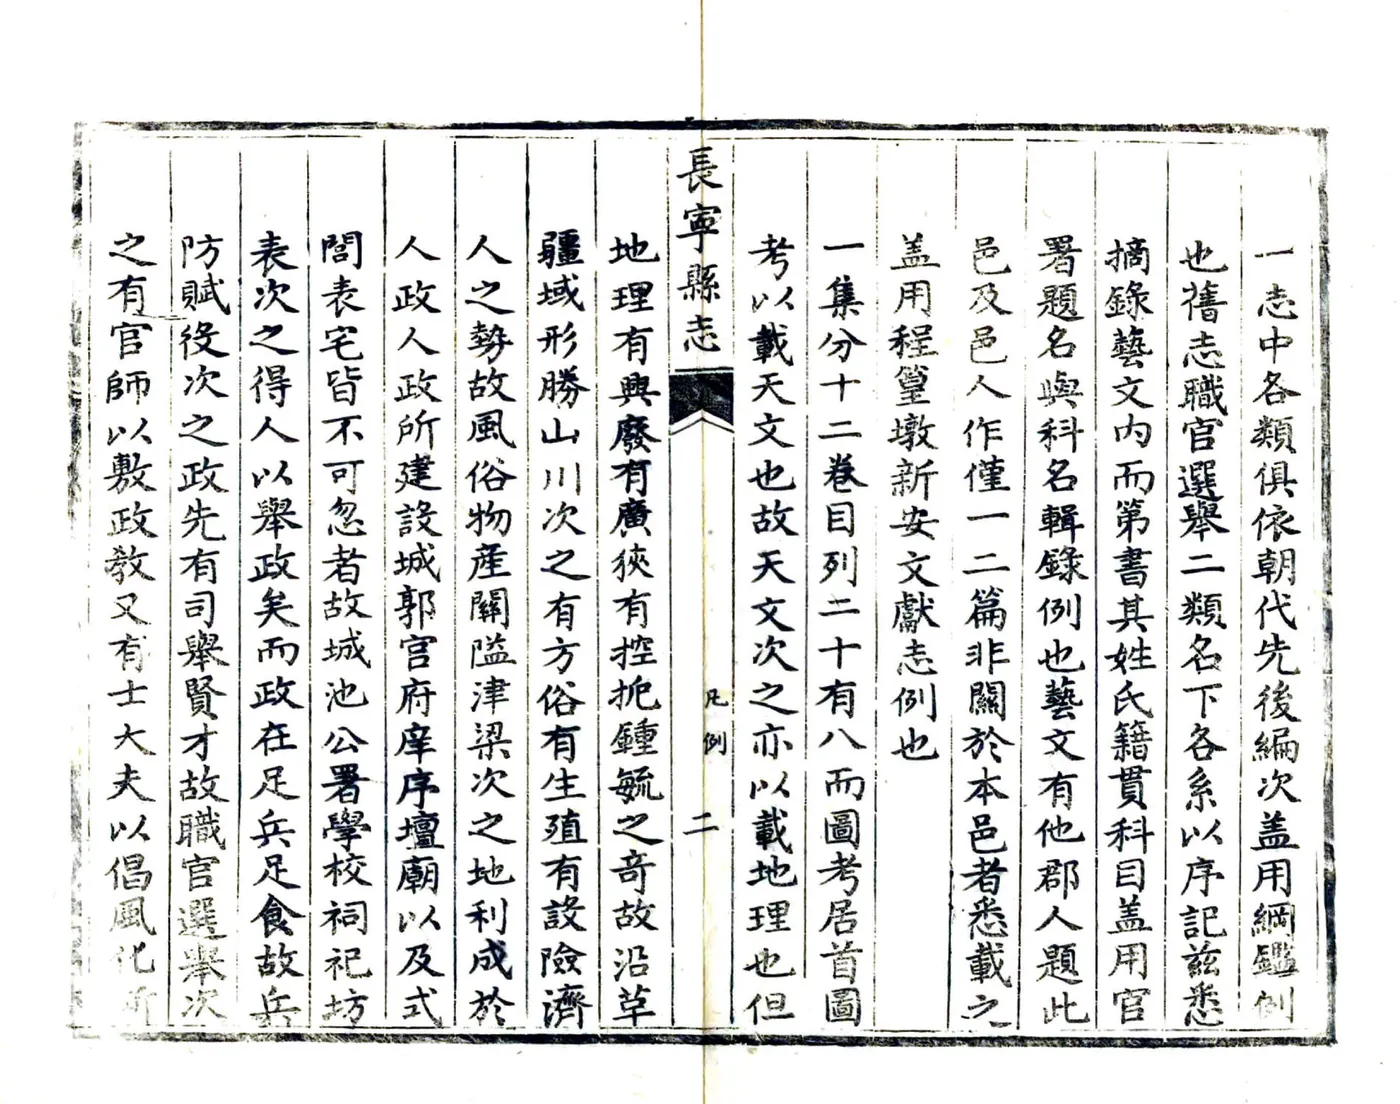 一志中各類俱依朝代先後編次盖用綱鑑例
也舊志職官選舉二類名下各系以序記兹悉
摘錄藝文内而第書其姓氏籍貫科目盖用官
署題名與科名輯錄例也藝文有他郡人題此
邑及邑人作僅一二篇非關於本邑者悉載之
盖用程篁墩新安文獻志例也
一集分十二卷目列二十有八而圖考居首圖
考以載天文也故天文次之亦以載地理也但
長寧縣志
凡例
二
地理有興廢有廣狹有控扼鍾毓之奇故沿革
疆域形勝山川次之有方俗有生殖有設險濟
人之勢故風俗物產關隘津梁次之地利成於
人政人政所建設城郭官府庠序壇廟以及式
閭表宅皆不可忽者故城池公署學校祠祀坊
表次之得人以舉政矣而政在足兵足食故兵
防賦役次之政先有司舉賢才故職官選舉次
之有官師以敷政敎又有士大夫以倡風化所